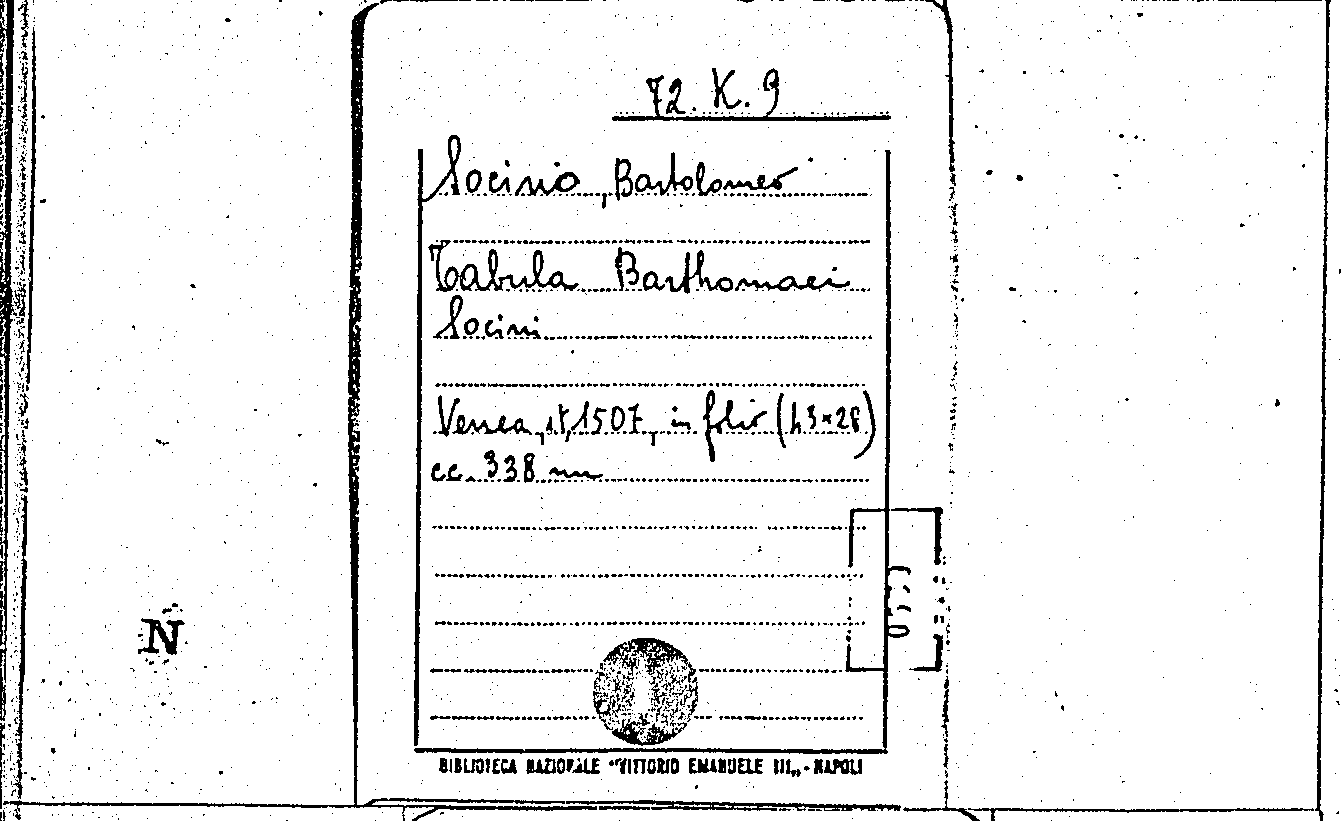 72. K. 9
Socino, Bartolomeo
Tabula Barthomaei
Socini
1507, in folio (43×28)
cc. 338 nn
N
BIBLIOTECA NAZIONALE "VITTORIO EMANUELE III„ - NAPOLI